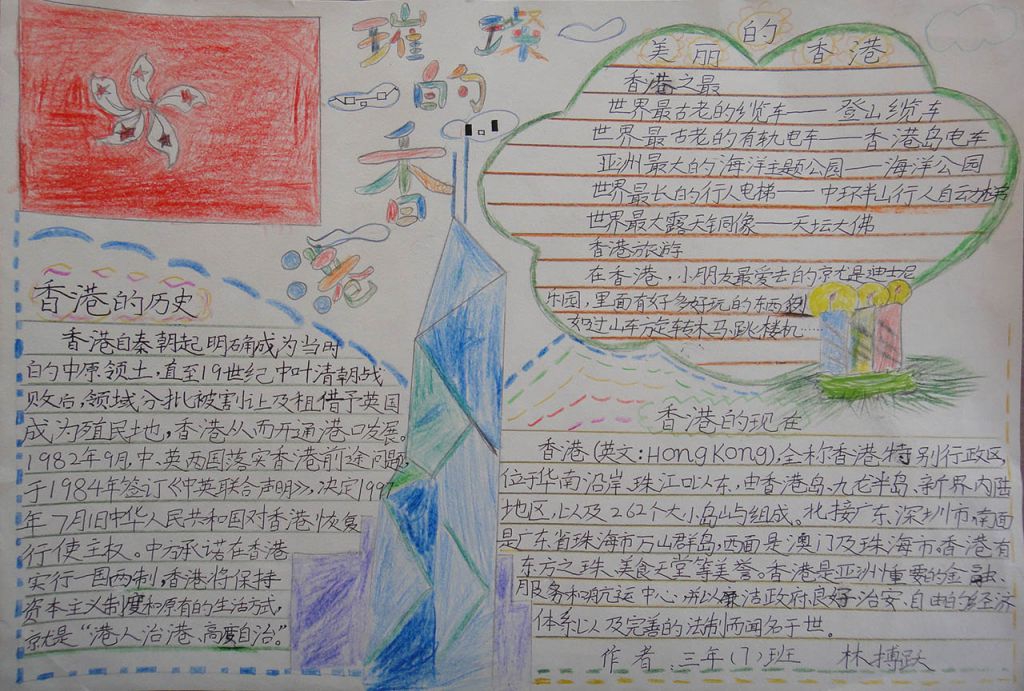 璀璨
的
香
港
香港的历史
香港自秦朝起明确成为当时
的中原领土,直至19世纪中叶清朝战
败后,领域分批被割让及租借予英国
成为殖民地,香港从而开通港口发展。
1982年9月,中、英两国落实香港前途问题,
于1984年签订《中英联合声明》,决定1997
年7月1日中华人民共和国对香港恢复
行使主权。中方承诺在香港
实行一国两制,香港将保持
资本主义制度和原有的生活方式,
就是“港人治港、高度自治。”
美丽的香港
香港之最
世界最古老的缆车——登山缆车
世界最古老的有轨电车——香港岛电车
亚洲最大的海洋主题公园——海洋公园
世界最长的行人电梯——中环半山行人自动梯
世界最大露天铜像——天坛大佛
香港旅游
在香港,小朋友最爱去的就是迪士尼
乐园,里面有好多好玩的东西
如过山车、旋转木马、跳楼机……
香港的现在
香港(英文:HongKong),全称香港特别行政区,
位于华南沿岸,珠江口以东,由香港岛、九龙半岛、新界内陆
地区,以及262个大小岛屿组成。北接广东、深圳市,南面
是广东省珠海市万山群岛,西面是澳门及珠海市。香港有
东方之珠、美食天堂等美誉。香港是亚洲重要的金融、
服务和航运中心,并以廉洁政府、良好治安、自由的经济
体系以及完善的法制而闻名于世。
作者:三年(7)班 林搏跃